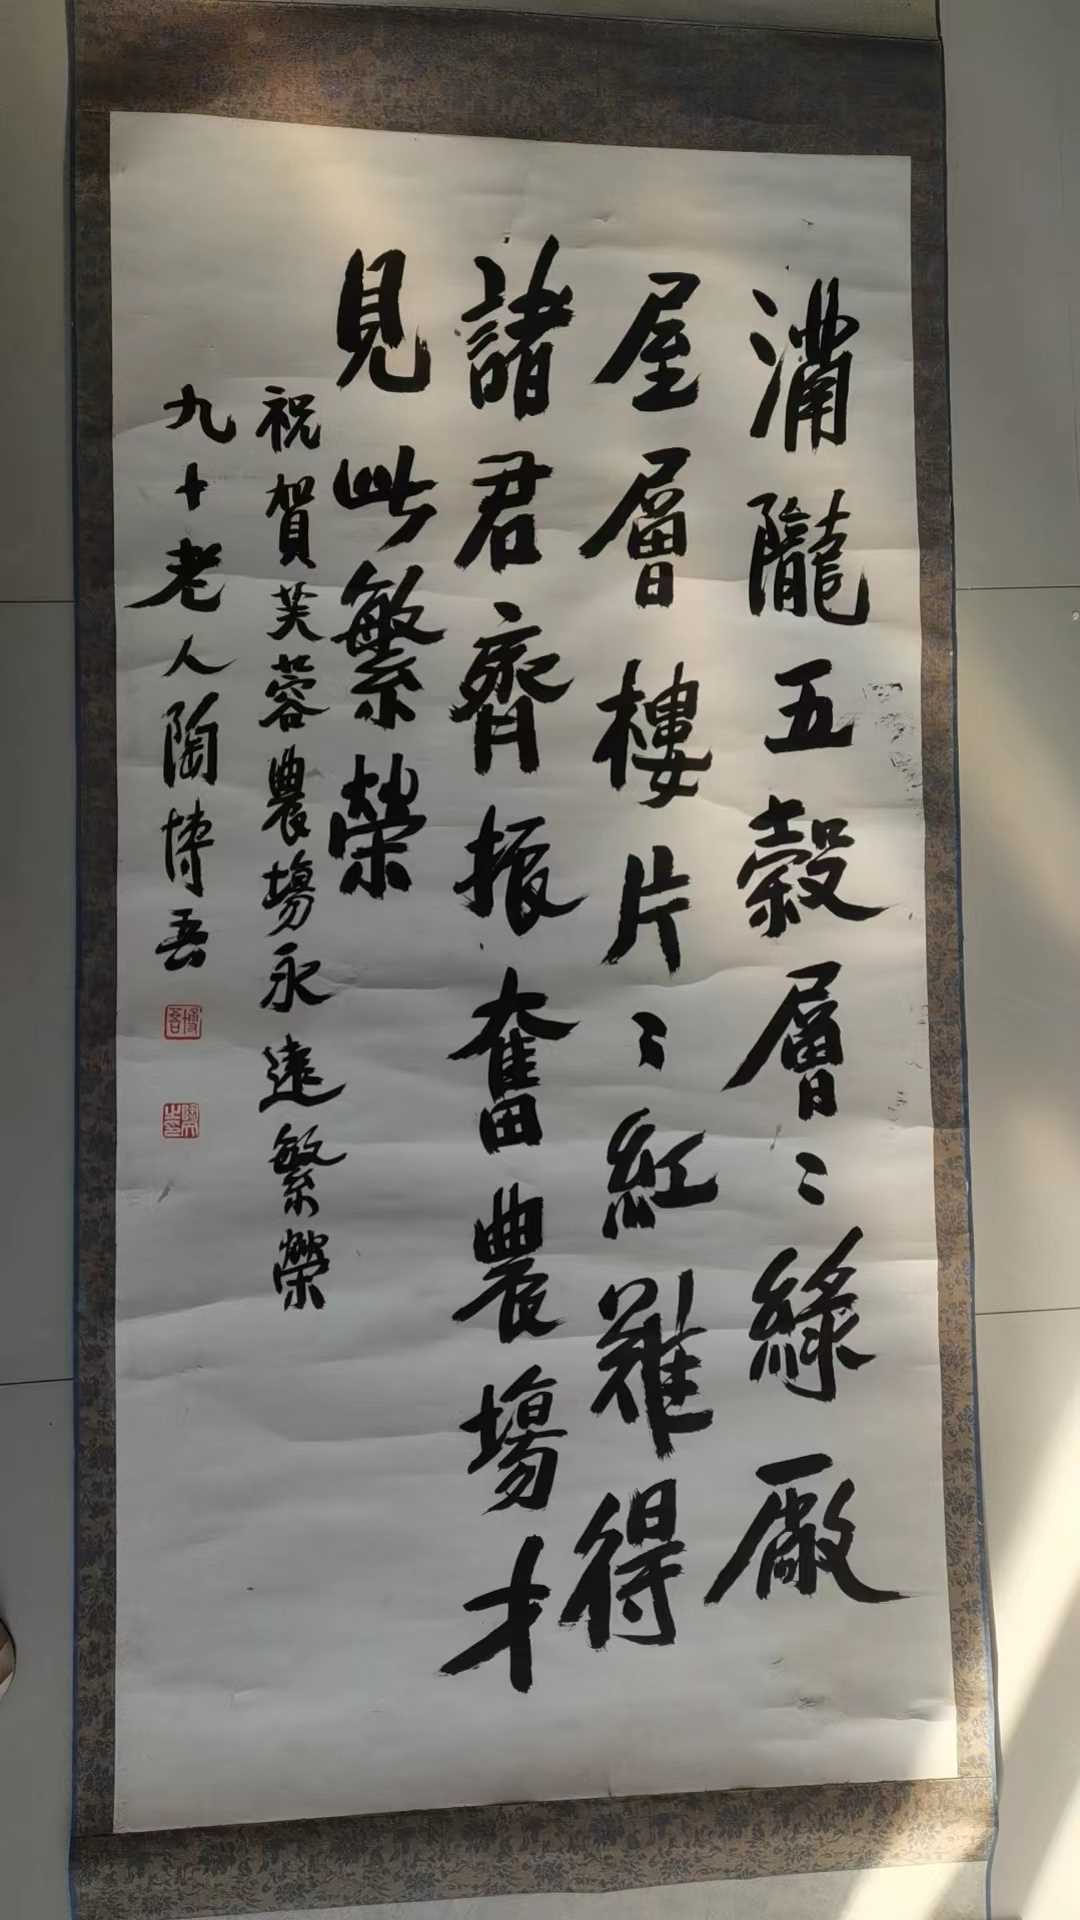 滿隴五穀層〻綠廠
屋層樓片〻紅難得
諸君齊振奮農場才
見此繁榮
祝賀芙蓉農場永遠繁榮
九十老人陶博吾
博吾
陶之印